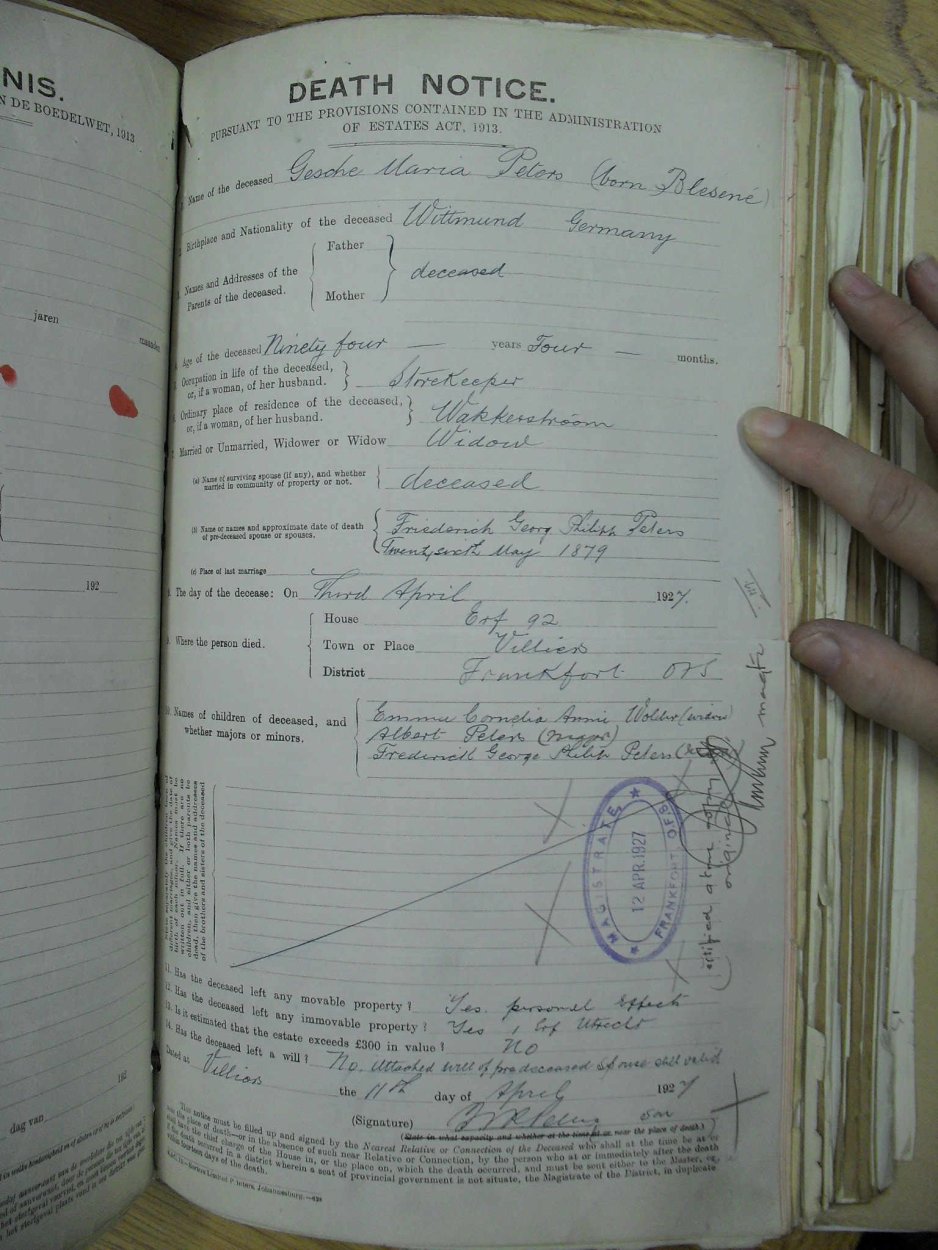 NIS.
N DE BOEDELWET, 1913
jaren
maanden
192
192
dag van
DEATH NOTICE.
PURSUANT TO THE PROVISIONS CONTAINED IN THE ADMINISTRATION
OF ESTATES ACT, 1913.
Name of the deceased Gesche Maria Peters (born Blesené)
Birthplace and Nationality of the deceased Wittmund Germany
Names and Addresses of the Parents of the deceased. Father Mother deceased
Age of the deceased Ninety four — years Four — months.
Occupation in life of the deceased, or, if a woman, of her husband. Storekeeper
Ordinary place of residence of the deceased, or, if a woman, of her husband. Wakkerstroom
Married or Unmarried, Widower or Widow Widow
(a) Name of surviving spouse (if any), and whether married in community of property or not. deceased
(b) Name or names and approximate date of death of pre-deceased spouse or spouses. Friederich Georg Philipp Peters
Twenty sixth May 1879
(c) Place of last marriage
8. The day of the decease: On Third April 1927.
9. Where the person died. House Erf 92
Town or Place Villiers
District Frankfort OFS
10. Names of children of deceased, and whether majors or minors. Emma Cornelia Annie Wolber (widow)
Albert Peters (major)
Frederick George Philip Peters
written out in full. If there are no
children, and either or both parents be
dead, then give the names and addresses
of the brothers and sisters of the deceased
MAGISTRATE
12 APR. 1927
FRANKFORT OFS
Certified a true copy of original
11. Has the deceased left any movable property? Yes. personal Effects
12. Has the deceased left any immovable property? Yes 1 Erf Utrecht
13. Is it estimated that the estate exceeds £300 in value? No
14. Has the deceased left a will? No. Attached will of predeceased spouse still valid
Dated at Villiers the 11th day of April 1927
(Signature) son
(State in what capacity and whether at the time in or near the place of death)
This notice must be filled up and signed by the Nearest Relative or Connection of the Deceased who shall at the time be at or
near the place of death—or in the absence of such near Relative or Connection, by the person who at or immediately after the death
shall have the chief charge of the House in, or the place on, which the death occurred, and must be sent either to the Master, or,
if the death occurred in a district wherein a seat of provincial government is not situate, the Magistrate of the District, in duplicate
within fourteen days of the death.